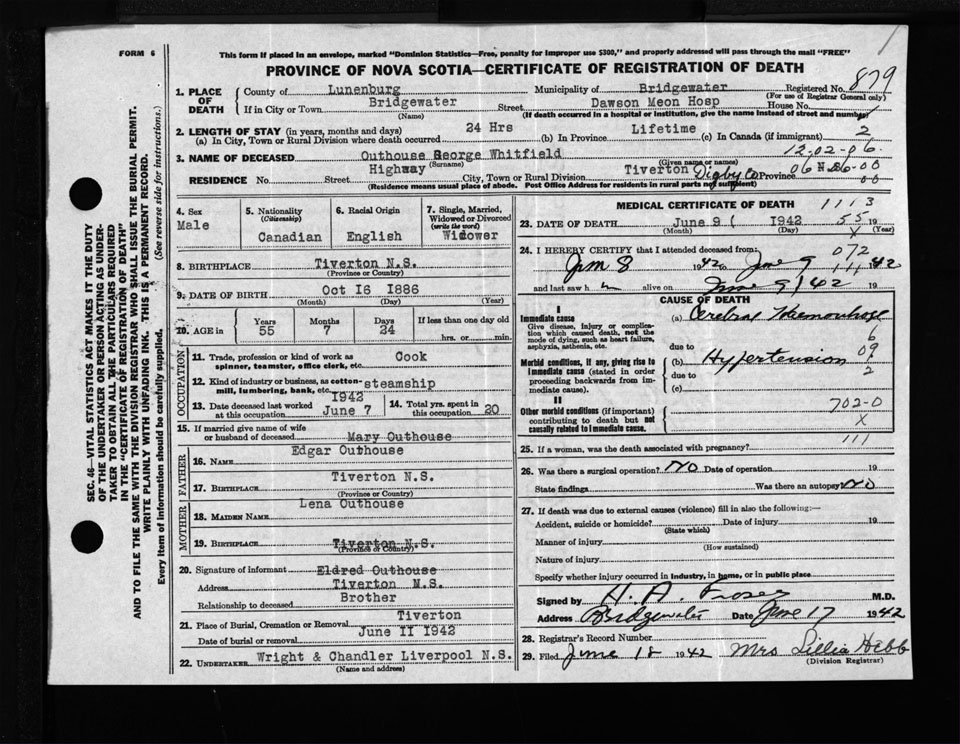 FORM 6
This form if placed in an envelope, marked "Dominion Statistics—Free, penalty for improper use $300," and properly addressed will pass through the mail "FREE"
PROVINCE OF NOVA SCOTIA—CERTIFICATE OF REGISTRATION OF DEATH
879
SEC. 46—VITAL STATISTICS ACT MAKES IT THE DUTY
OF THE UNDERTAKER OR PERSON ACTING AS UNDER-
TAKER TO OBTAIN ALL THE PARTICULARS REQUIRED
IN THE "CERTIFICATE OF REGISTRATION OF DEATH"
AND TO FILE THE SAME WITH THE DIVISION REGISTRAR WHO SHALL ISSUE THE BURIAL PERMIT.
WRITE PLAINLY WITH UNFADING INK. THIS IS A PERMANENT RECORD.
Every item of information should be carefully supplied. (See reverse side for instructions.)
1. PLACE OF DEATH County of Lunenburg Municipality of Bridgewater Registered No.
(For use of Registrar General only)
If in City or Town Bridgewater Street Dawson Meon Hosp House No.
(Name) (If death occurred in a hospital or institution, give the name instead of street and number)
2. LENGTH OF STAY (in years, months and days)
(a) In City, Town or Rural Division where death occurred 24 Hrs (b) In Province Lifetime (c) In Canada (if immigrant) 2
12-02-06
3. NAME OF DECEASED Outhouse George Whitfield
(Surname) (Given name or names)
RESIDENCE No. Street Highway City, Town or Rural Division Tiverton Digby Co Province N.S.
06 06-00
00
(Residence means usual place of abode. Post Office Address for residents in rural parts not sufficient)
4. Sex
Male
5. Nationality
(Citizenship)
Canadian
6. Racial Origin
English
7. Single, Married,
Widowed or Divorced
(write the word)
Widower
8. BIRTHPLACE Tiverton N.S.
(Province or Country)
9. DATE OF BIRTH Oct 16 1886
(Month) (Day) (Year)
10. AGE in Years Months Days If less than one day old
55 7 24 hrs. or min.
OCCUPATION
11. Trade, profession or kind of work as
spinner, teamster, office clerk, etc. Cook
12. Kind of industry or business, as cotton-
mill, lumbering, bank, etc. steamship
13. Date deceased last worked
at this occupation 1942 June 7
14. Total yrs. spent in
this occupation 20
15. If married give name of wife
or husband of deceased Mary Outhouse
FATHER
16. NAME Edgar Outhouse
17. BIRTHPLACE Tiverton N.S.
(Province or Country)
MOTHER
18. MAIDEN NAME Lena Outhouse
19. BIRTHPLACE Tiverton N.S.
(Province or Country)
20. Signature of informant Eldred Outhouse
Address Tiverton N.S.
Relationship to deceased Brother
21. Place of Burial, Cremation or Removal Tiverton
Date of burial or removal June 11 1942
22. UNDERTAKER Wright & Chandler Liverpool N.S.
(Name and address)
MEDICAL CERTIFICATE OF DEATH
1113
23. DATE OF DEATH June 9 ( 1942 19
55
(Month) (Day) X (Year)
24. I HEREBY CERTIFY that I attended deceased from:
072
June 8 1942 to June 9 1942
111
and last saw h m alive on June 9/42 19
CAUSE OF DEATH
I
Immediate cause
Give disease, injury or complica-
tion which caused death, not the
mode of dying, such as heart failure,
asphyxia, asthenia, etc.
(a) Cerebral Haemorrhage
6
due to
Morbid conditions, if any, giving rise to
immediate cause (stated in order
proceeding backwards from im-
mediate cause).
(b) Hypertension
09
due to 2
(c)
II
Other morbid conditions (if important)
contributing to death but not
causally related to immediate cause.
702-0
X
111
25. If a woman, was the death associated with pregnancy?
26. Was there a surgical operation? NO Date of operation 19
State findings Was there an autopsy NO
27. If death was due to external causes (violence) fill in also the following:—
Accident, suicide or homicide? Date of injury 19
(State which)
Manner of injury
(How sustained)
Nature of injury
Specify whether injury occurred in industry, in home, or in public place
Signed by H. A. M.D.
Address Bridgewater Date June 17 1942
28. Registrar's Record Number
29. Filed June 18 1942 Mrs Lillia Hebb
(Division Registrar)